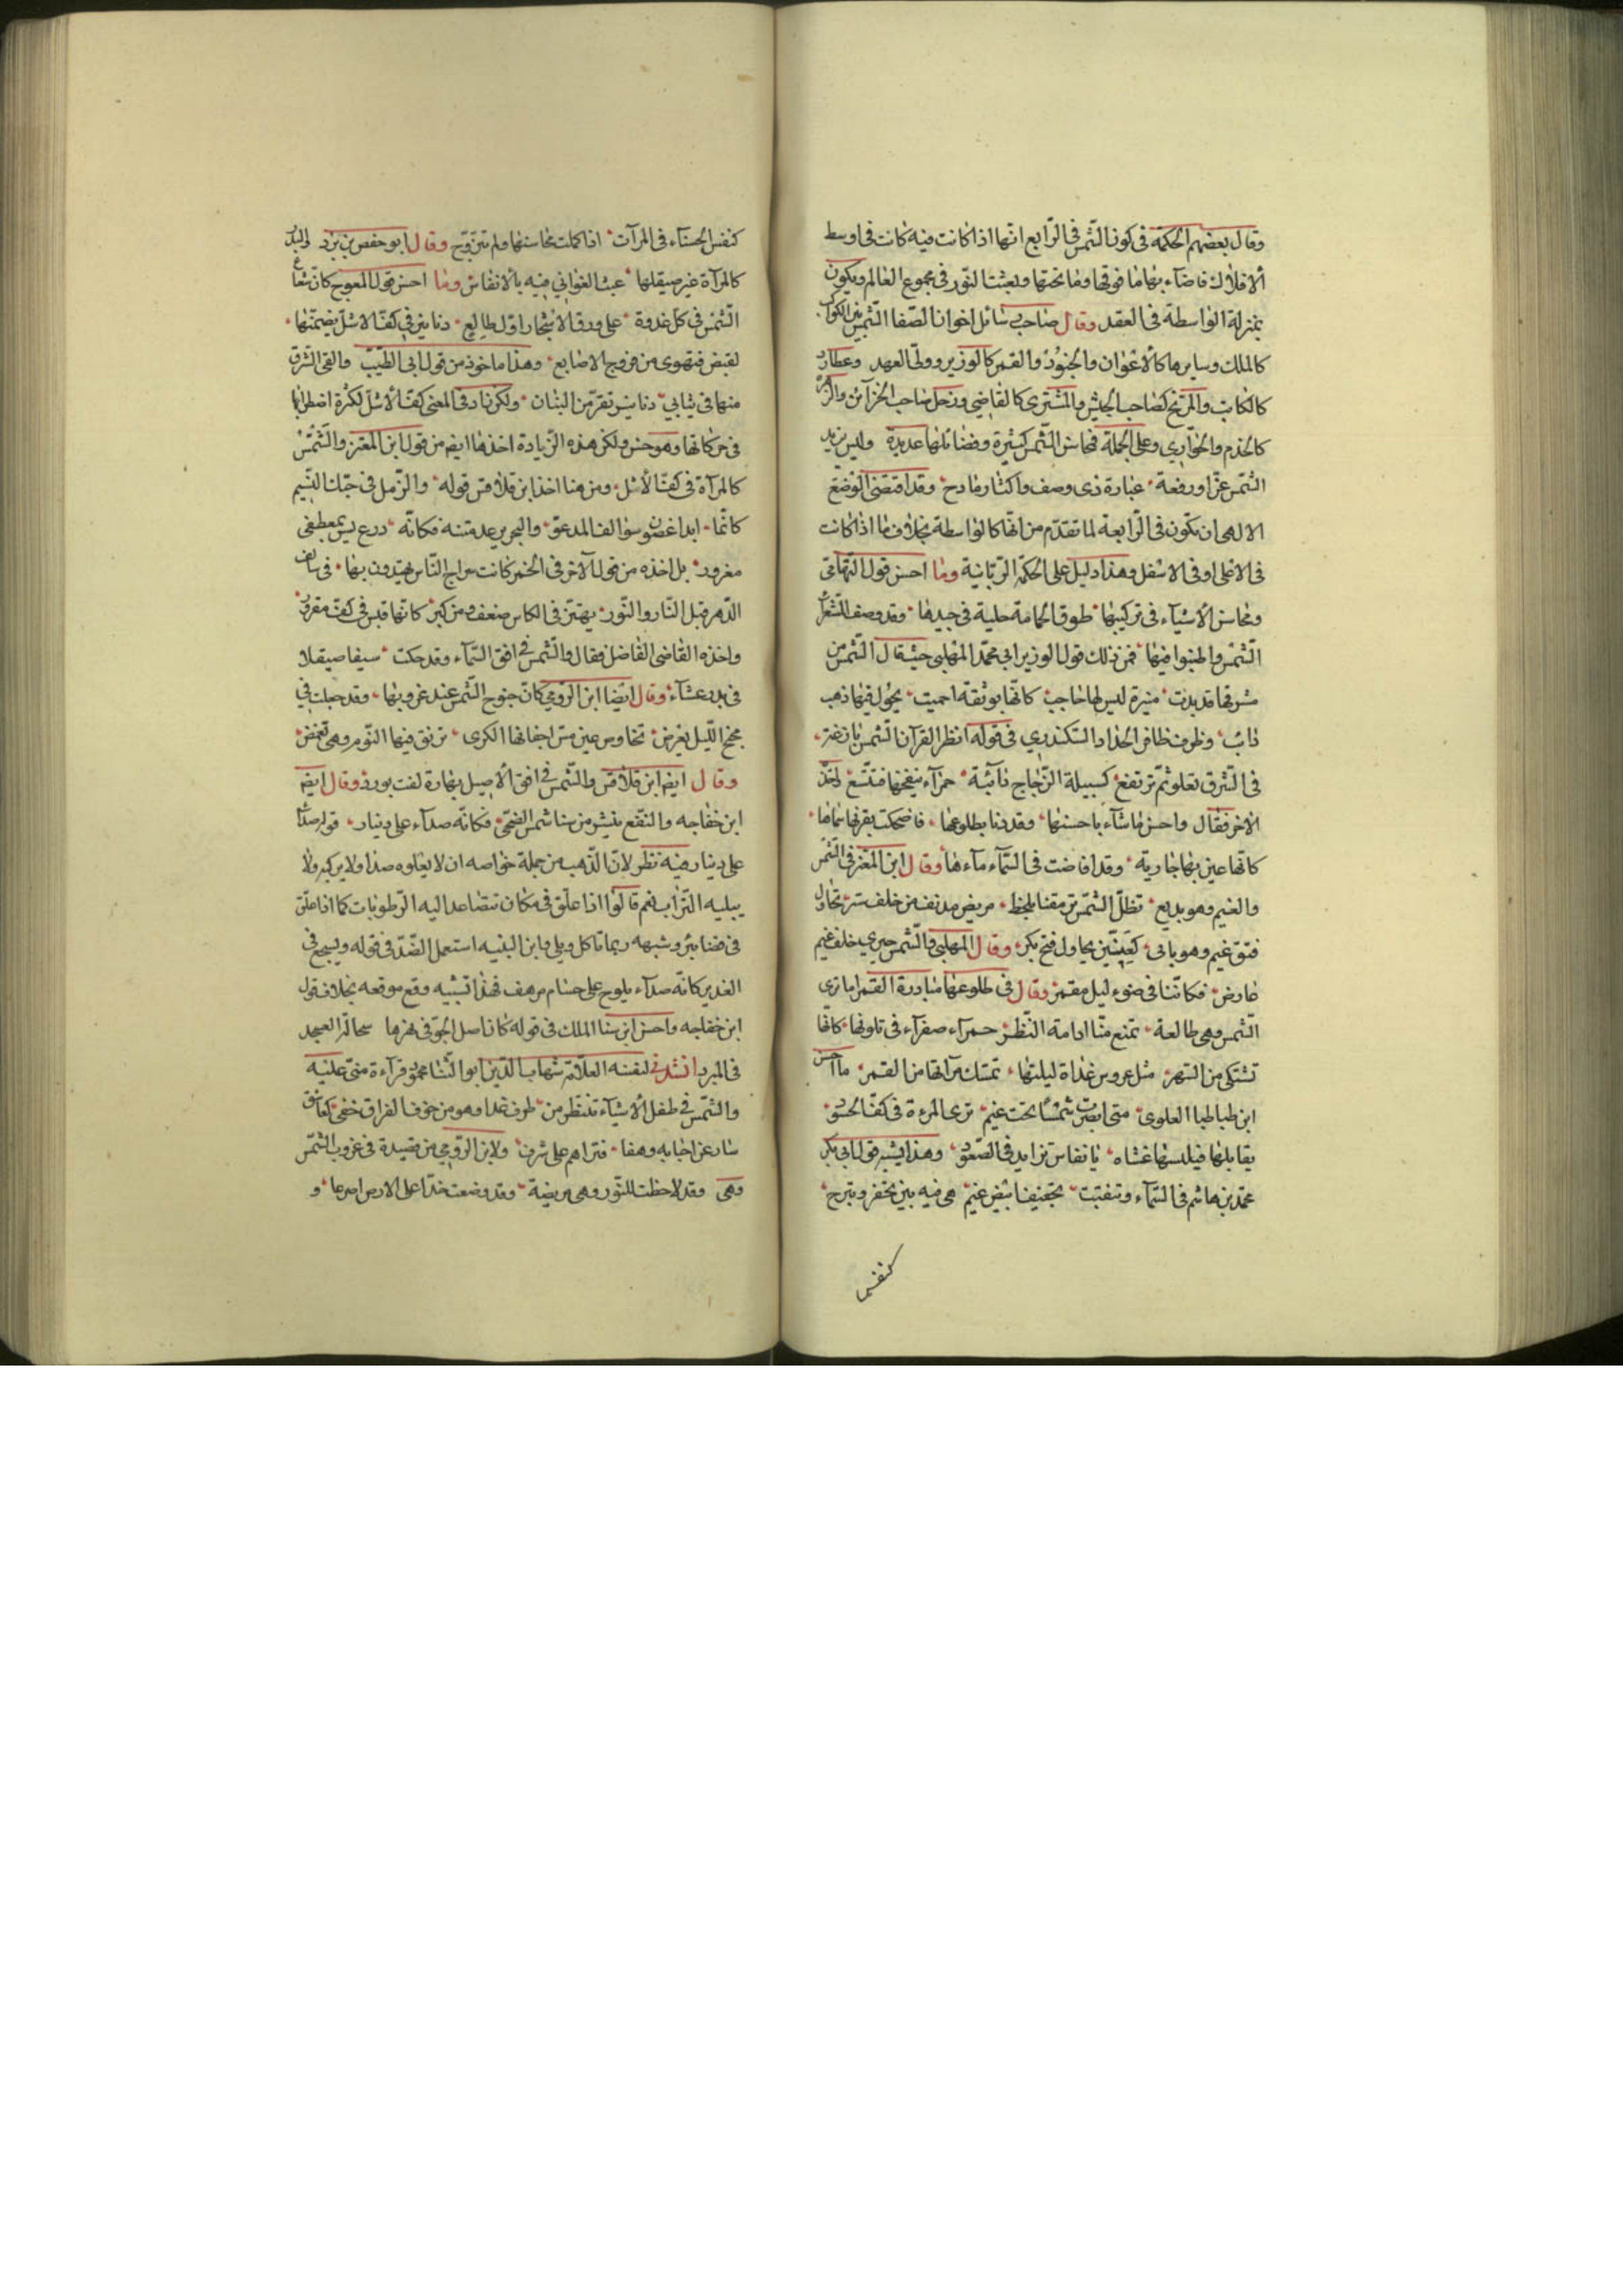 وقال بعضهم الحكمة في كون الشمس في الرابع انها اذا كانت فيه كانت في اوسط
الافلاك فاضاء بها ما فوقها وما تحتها وبعثت النور في مجموع العالم ويكون
بمنزلة الواسطة في العقد وقال صاحب رسائل اخوان الصفا الشمس بين الكواكب
كالملك وسايرها كالاعوان والجنود والقمر كالوزير وولى العهد وعطارد
كالكاتب والمريخ كصاحب الجيش والمشترى كالقاضي وزحل صاحب الخزائن والزهرة
كالخدم والجواري وعلى الجملة فمحاسن الشمس كثيرة وفضائلها عديدة وليس يزيد
الشمس عزا ورفعة عبارة ذى وصف واكثار مادح وقد اقتضى الوضع
الالهى ان تكون في الرابعة لما تقدم من انها كالواسطة بخلاف ما اذا كانت
في الاعلى او في الاسفل وهذا دليل على الحكمة الربانية وما احسن قول التهامى
ومحاسن الاشياء في تركيبها طوق الحمامة حلية في جيدها وقد وصف الشعراء
الشمس واطنبوا فيها فمن ذلك قول الوزير ابي محمد المهلبى حيث قال الشمس من
مشرقها قد بدت منيرة ليس لها حاجب كانها بوتقة احميت يجول فيها ذهب
ذائب وظرف ظافر الحداد السكندري في قوله انظر القرآن الشمس بازغة
في الشرق تعلو ثم ترتفع كسبيلة الزجاج ذائبة حمراء ينفخها فتتسع اخذ
الاخر فقال واحسن ما شاء باحسنها وقد دنا بطلوعها فاضحكت بقربها
كانها عين بها جارية وقد افاضت في السماء ماءها وقال ابن المعتز في الشمس
والغيم وهو بديع تظل الشمس ترمقنا بلحظ مريض مدنف من خلف ستر تحاول
فتق غيم وهو يابى كعنين يحاول فتح بكر وقال المهلبى والشمس خلف غيم
عارض فكاننا في ضوء ليل مقمر وقال في طلوعها مبادرة القمر اما ترى
الشمس وهى طالعة تمنع منا ادامة النظر حمراء صفراء في تلونها كانها
تشتكى من السهر مثل عروس غداة ليلتها تمسك مرآتها من القمر ما احسن
ابن طباطبا العلوى متى ابصرت شمسا تحت غيم ترى المرءة في كف الحسود
يقابلها فيلبسها غشاء بانفاس تزايد في الصعود وهذا يشبه قول ابي بكر
محمد بن هاشم في السماء وتنقبت بخفيف غيم هى فيه بين تخفر وتبرج
كنفس
كنفس الحسناء في المرآت اذا كملت محاسنها ولم تتزوج وقال ابو حفص بن برد والبدر
كالمرآة غير صيقلها عبث الغوانى فيه بالانفاس وما احسن قول المعوج كان شعاع
الشمس في كل غدوة على ورق الاشجار اول طالع دنانير في كف الاشل يضمها
لقبض فتهوى من فروج الاصابع وهذا ماخوذ من قول ابى الطيب والقى الشرق
منها في ثيابي دنانير تفر من البنان ولكن زاد في المعنى كف الاشل لكثرة اضطرابها
في حركاتها وهو حسن ولكن هذه الزيادة اخذها ايضا من قول ابن المعتز والشمس
كالمرآة في كف الاشل ومن هنا اخذ ابن قلاقس قوله والرمل في حبك النسيم
كانما ابدا غضون سوالف المدعق والبحر يرعد متنه فكانه درع
مغرور بل اخذه من قول الآخر في الخمر كانت سراج الناس يهتدون بها في سالف
الدهر قبل النار والنور يهتز في الكاس من ضعف ومن كبر كانها قبس في كف مقرور
واخذه القاضى الفاضل فقال والشمس في افق السماء وقد حكت سيفا صيقلا
في يد رعشاء وقال ايضا ابن الرومي كان جنوح الشمس عند غروبها وقد جعلت في
مجنح الليل تمرض تخاوص عين مس اجفانها الكرى ترنق فيها النوم وهى تغمض
وقال ايضا ابن قلاقس والشمس في افق الاصيل بهارة لفت بورد وقال ايضا
ابن خفاجه والنقع ينشر من سنا شمس الضحى فكانه صداء على دينار قوله صداء
على دينار فيه نظر لان الذهب من جملة خواصه ان لا يعلوه صدا ولا يركبه ولا
يبليه التراب نعم قالوا اذا علق في مكان تتصاعد اليه الرطوبات كما اذا علق
في فضا بئر وشبهه ربما تاكل وبلى وابن النبيه استعمل الضد في قوله ويسبح في
الغدير كانه صداء يلوح على حسام مرهف فهذا تشبيه وقع موقعه بخلاف قول
ابن خفاجه واحسن ابن سنا الملك في قوله كان اصل الجو في نهرها سحالة العسجد
في المبرد انشدني لنفسه العلامة شهاب الدين ابو الثنا محمود قراءة منى عليه
والشمس في طفل الاشياء تنظر من طرف غدا وهو من خوف الفراق خفى كعاشق
سار عن احبابه وهفا فتراهم على شرف ولابن الرومي من قصيدة في غروب الشمس
وهى وقد لاحظت للنور وهى مريضة وقد وضعت خدا على الارض اصرعا و